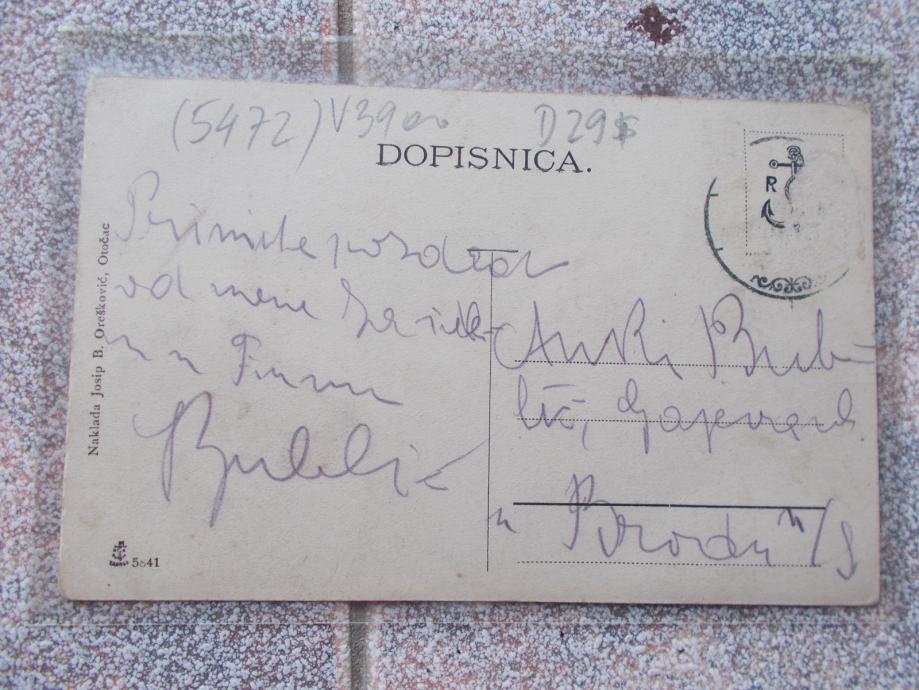 (5472) V3900 D295
DOPISNICA.
R
Naklada Josip B. Orešković, Otočac
Primite pozdrav
od mene
Fiumu
Bublić
Anki Bub-
lić, Gajeva ul.
u Brodu n/S
5841